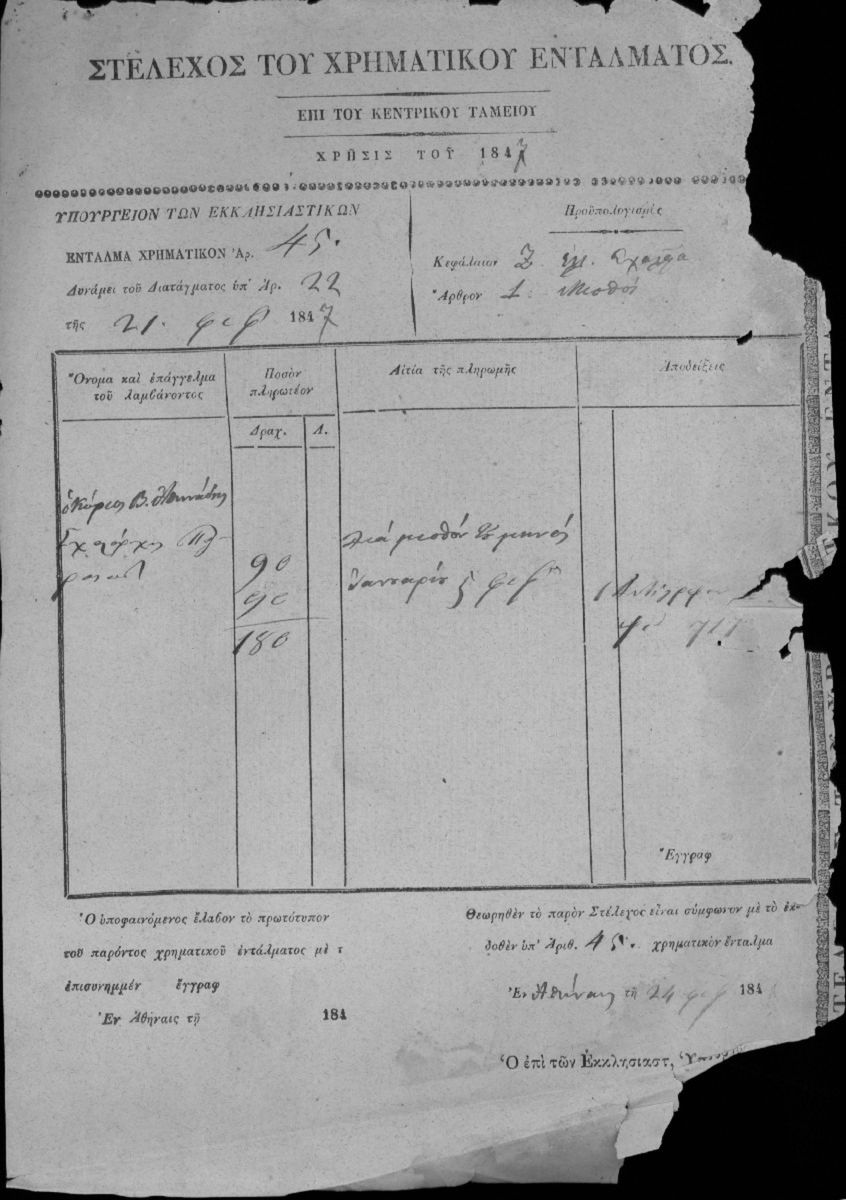 ΣΤΕΛΕΧΟΣ ΤΟΥ ΧΡΗΜΑΤΙΚΟΥ ΕΝΤΑΛΜΑΤΟΣ.
ΕΠΙ ΤΟΥ ΚΕΝΤΡΙΚΟΥ ΤΑΜΕΙΟΥ
ΧΡΗΣΙΣ ΤΟΥ 1847
ΥΠΟΥΡΓΕΙΟΝ ΤΩΝ ΕΚΚΛΗΣΙΑΣΤΙΚΩΝ
ΕΝΤΑΛΜΑ ΧΡΗΜΑΤΙΚΟΝ Ἀρ. 45.
Δυνάμει τοῦ Διατάγματος ὑπ' Ἀρ. 22
τῆς 21. φεβ 1847
Προϋπολογισμὸς
Κεφάλαιον Ζ
Ἄρθρον 1. Μισθοί
Ὄνομα καὶ ἐπάγγελμα
τοῦ λαμβάνοντος
Ποσὸν
πληρωτέον
Δραχ. Λ.
Αἰτία τῆς πληρωμῆς
Ἀποδείξεις
ὁ Κύριος Β.
90
90
180
Διά μισθόν τοῦ μηνός
Ἰανουαρίου
Ἔγγραφ
Ὁ ὑποφαινόμενος ἔλαβον τὸ πρωτότυπον
τοῦ παρόντος χρηματικοῦ ἐντάλματος μὲ τ
ἐπισυνημμέν ἔγγραφ
Ἐν Ἀθήναις τῇ 184
Θεωρηθὲν τὸ παρὸν Στέλεχος εἶναι σύμφωνον μὲ τὸ ἐκ-
δοθὲν ὑπ' Ἀριθ. 45. χρηματικὸν ἔνταλμα
Ἐν Ἀθήναις τῇ 24 φεβ 184
Ὁ ἐπὶ τῶν Ἐκκλησιαστ. Ὑπουργ